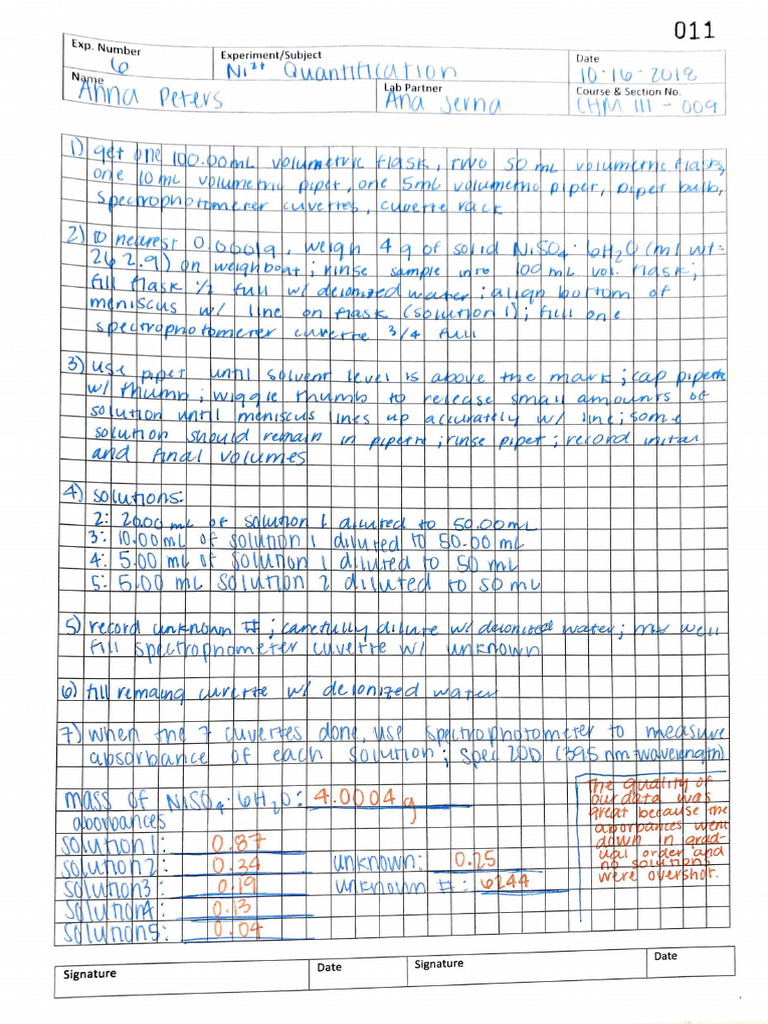 011
Exp. Number
6
Experiment/Subject
Ni²⁺ Quantification
Date
10-16-2018
Name
Anna Peters
Lab Partner
Ana Serna
Course & Section No.
CHM 111 - 009
1) get one 100.00mL volumetric flask, two 50 mL volumetric flasks,
one 10 mL volumetric pipet, one 5mL volumetric pipet, pipet bulb,
spectrophotometer cuvettes, cuvette rack
2) to nearest 0.0001g, weigh 4 g of solid NiSO₄·6H₂O (ml wt=
262.9) on weighboat; rinse sample into 100 mL vol. flask;
fill flask 1/2 full w/ deionized water; align bottom of
meniscus w/ line on flask (solution 1); fill one
spectrophotometer cuvette 3/4 full
3) use pipet until solvent level is above the mark; cap pipette
w/ thumb; wiggle thumb to release small amounts of
solution until meniscus lines up accurately w/ line; some
solution should remain in pipette; rinse pipet; record initial
and final volumes
4) solutions:
2: 20.00 mL of solution 1 diluted to 50.00mL
3: 10.00mL of solution 1 diluted to 50.00 mL
4: 5.00 mL of solution 1 diluted to 50 mL
5: 5.00 mL solution 2 diluted to 50 mL
5) record unknown #; carefully dilute w/ deionized water; mix well
fill spectrophometer cuvette w/ unknown
6) fill remaing cuvette w/ deionized water
7) when the 7 cuvettes done, use spectrophotometer to measure
absorbance of each solution; spec 20D (395 nm wavelength)
mass of NiSO₄·6H₂O: 4.0004 g
aborbances
solution 1: 0.87
solution 2: 0.34
solution 3: 0.19
solution 4: 0.13
solution 5: 0.04
unknown: 0.25
unknown #: 6244
The quality of
our data was
great because the
aborpances went
down in grad-
ual order and
no solutions
were overshot.
Signature
Date
Signature
Date